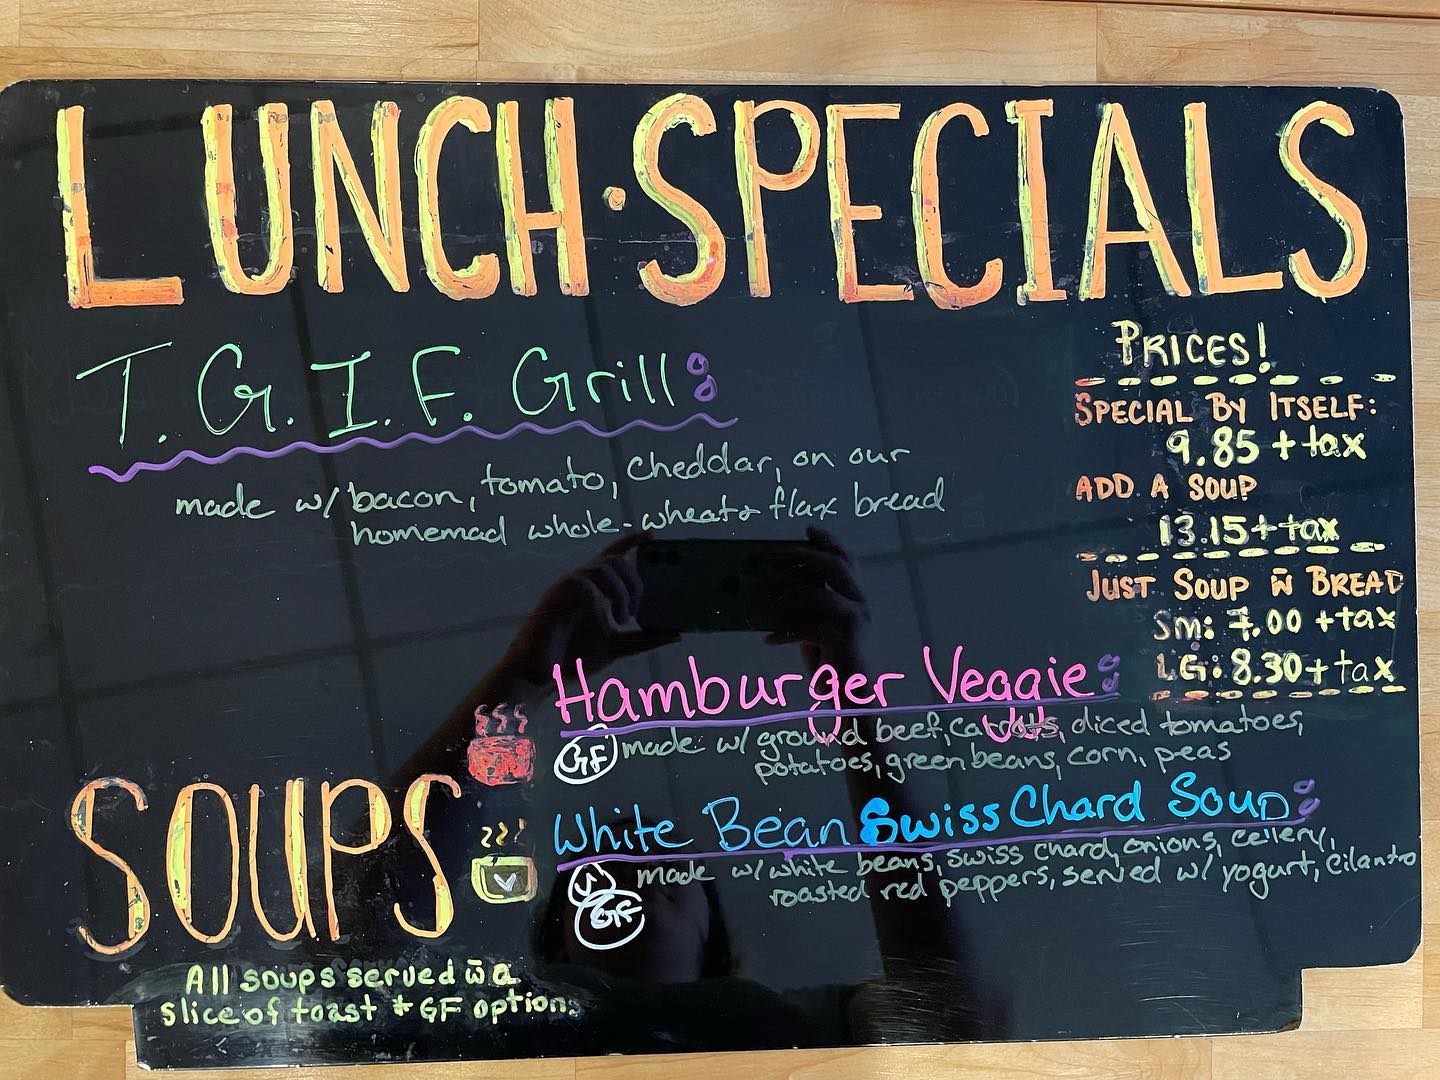 LUNCH·SPECIALS
T. G. I. F. Grill:
made w/ bacon, tomato, cheddar, on our
homemad whole-wheat & flax bread
PRICES!
SPECIAL BY ITSELF:
9.85 + tax
ADD A SOUP
13.15 + tax
JUST SOUP w̄ BREAD
SM: 7.00 + tax
LG: 8.30 + tax
SOUPS
Hamburger Veggie:
GF made w/ ground beef, carrots, diced tomatoes,
potatoes, green beans, corn, peas
White Bean Swiss Chard Soup:
V made w/ white beans, swiss chard, onions, cellery,
GF roasted red peppers, served w/ yogurt, cilantro
All soups served w̄ a
slice of toast * GF option